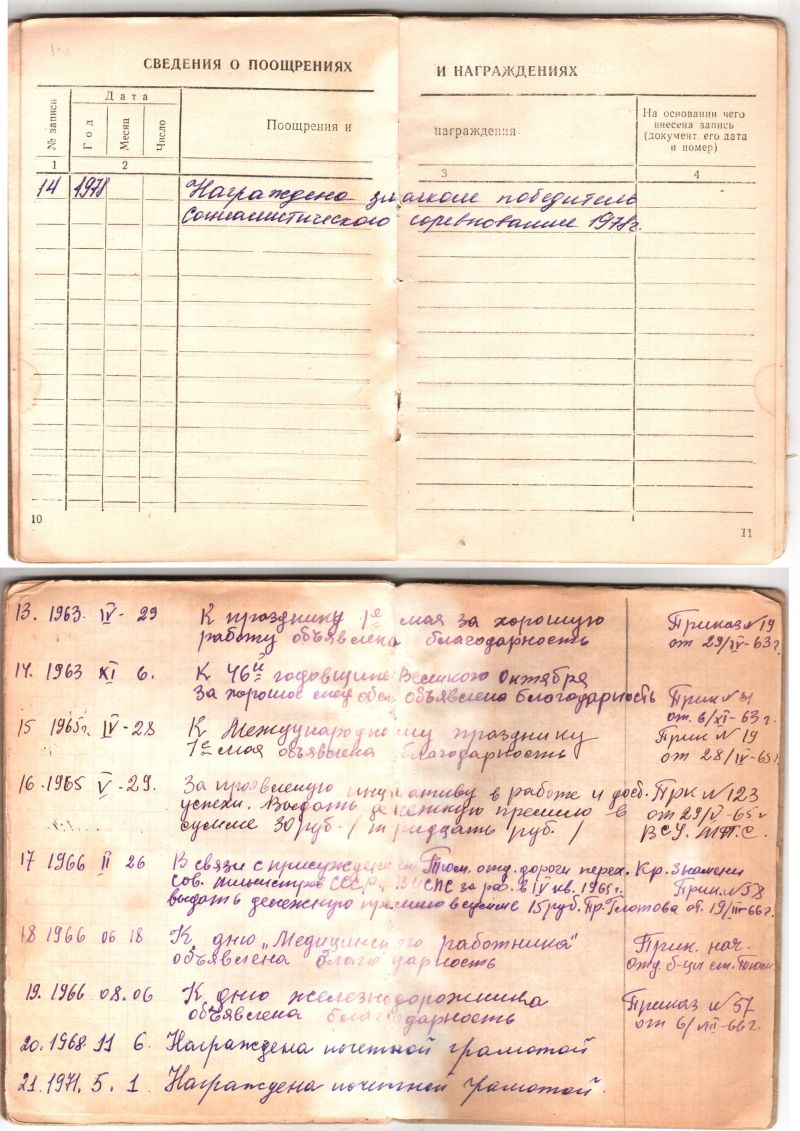 СВЕДЕНИЯ О ПООЩРЕНИЯХ И НАГРАЖДЕНИЯХ
№ записи
Дата
Год
Месяц
Число
Поощрения и награждения
На основании чего
внесена запись
(документ, его дата
и номер)
1 2 3 4
14 1978 Награждена значком победитель
социалистического соревнования 1978г.
10
11
13. 1963. IV - 29 К празднику 1е мая за хорошую Приказ №19
работу объявлена благодарность от 29/IV-63г.
14. 1963 XI 6. К 46й годовщине Великого Октября
За хорошое объявлена благодарность Прик №
от 6/XI-63г.
15 1965г. IV-28 К Международному празднику Прик №19
1е мая объявлена благодарность от 28/IV-65г
16-1965 V-29. За проявленую инциативу в работе и доб. Прк №123
успехи. Выдать денежную премию в от 29/V-65г
сумме 30 руб. / тридцать руб. /
17 1966 II 26 В связи с присуждением Тюм. отд. дороги перех. Кр. Знамени
Сов. Министров СССР и ВЦСПС за раб. в IV кв. 1965г. Прик. №38
выдать денежную премию в сумме 15 руб. Пр. Глотова от. 19/III-66г.
18 1966 06 18 К дню „Медицинского работника" Прик. нач.
объявлена благодарность отд. б-цы ст. Тюм
19. 1966 08.06 К дню железнодорожника Приказ №57
объявлена благодарность от 6/VIII-66г.
20. 1968. 11 6. Награждена почетной грамотой
21. 1971. 5. 1. Награждена почетной грамотой.